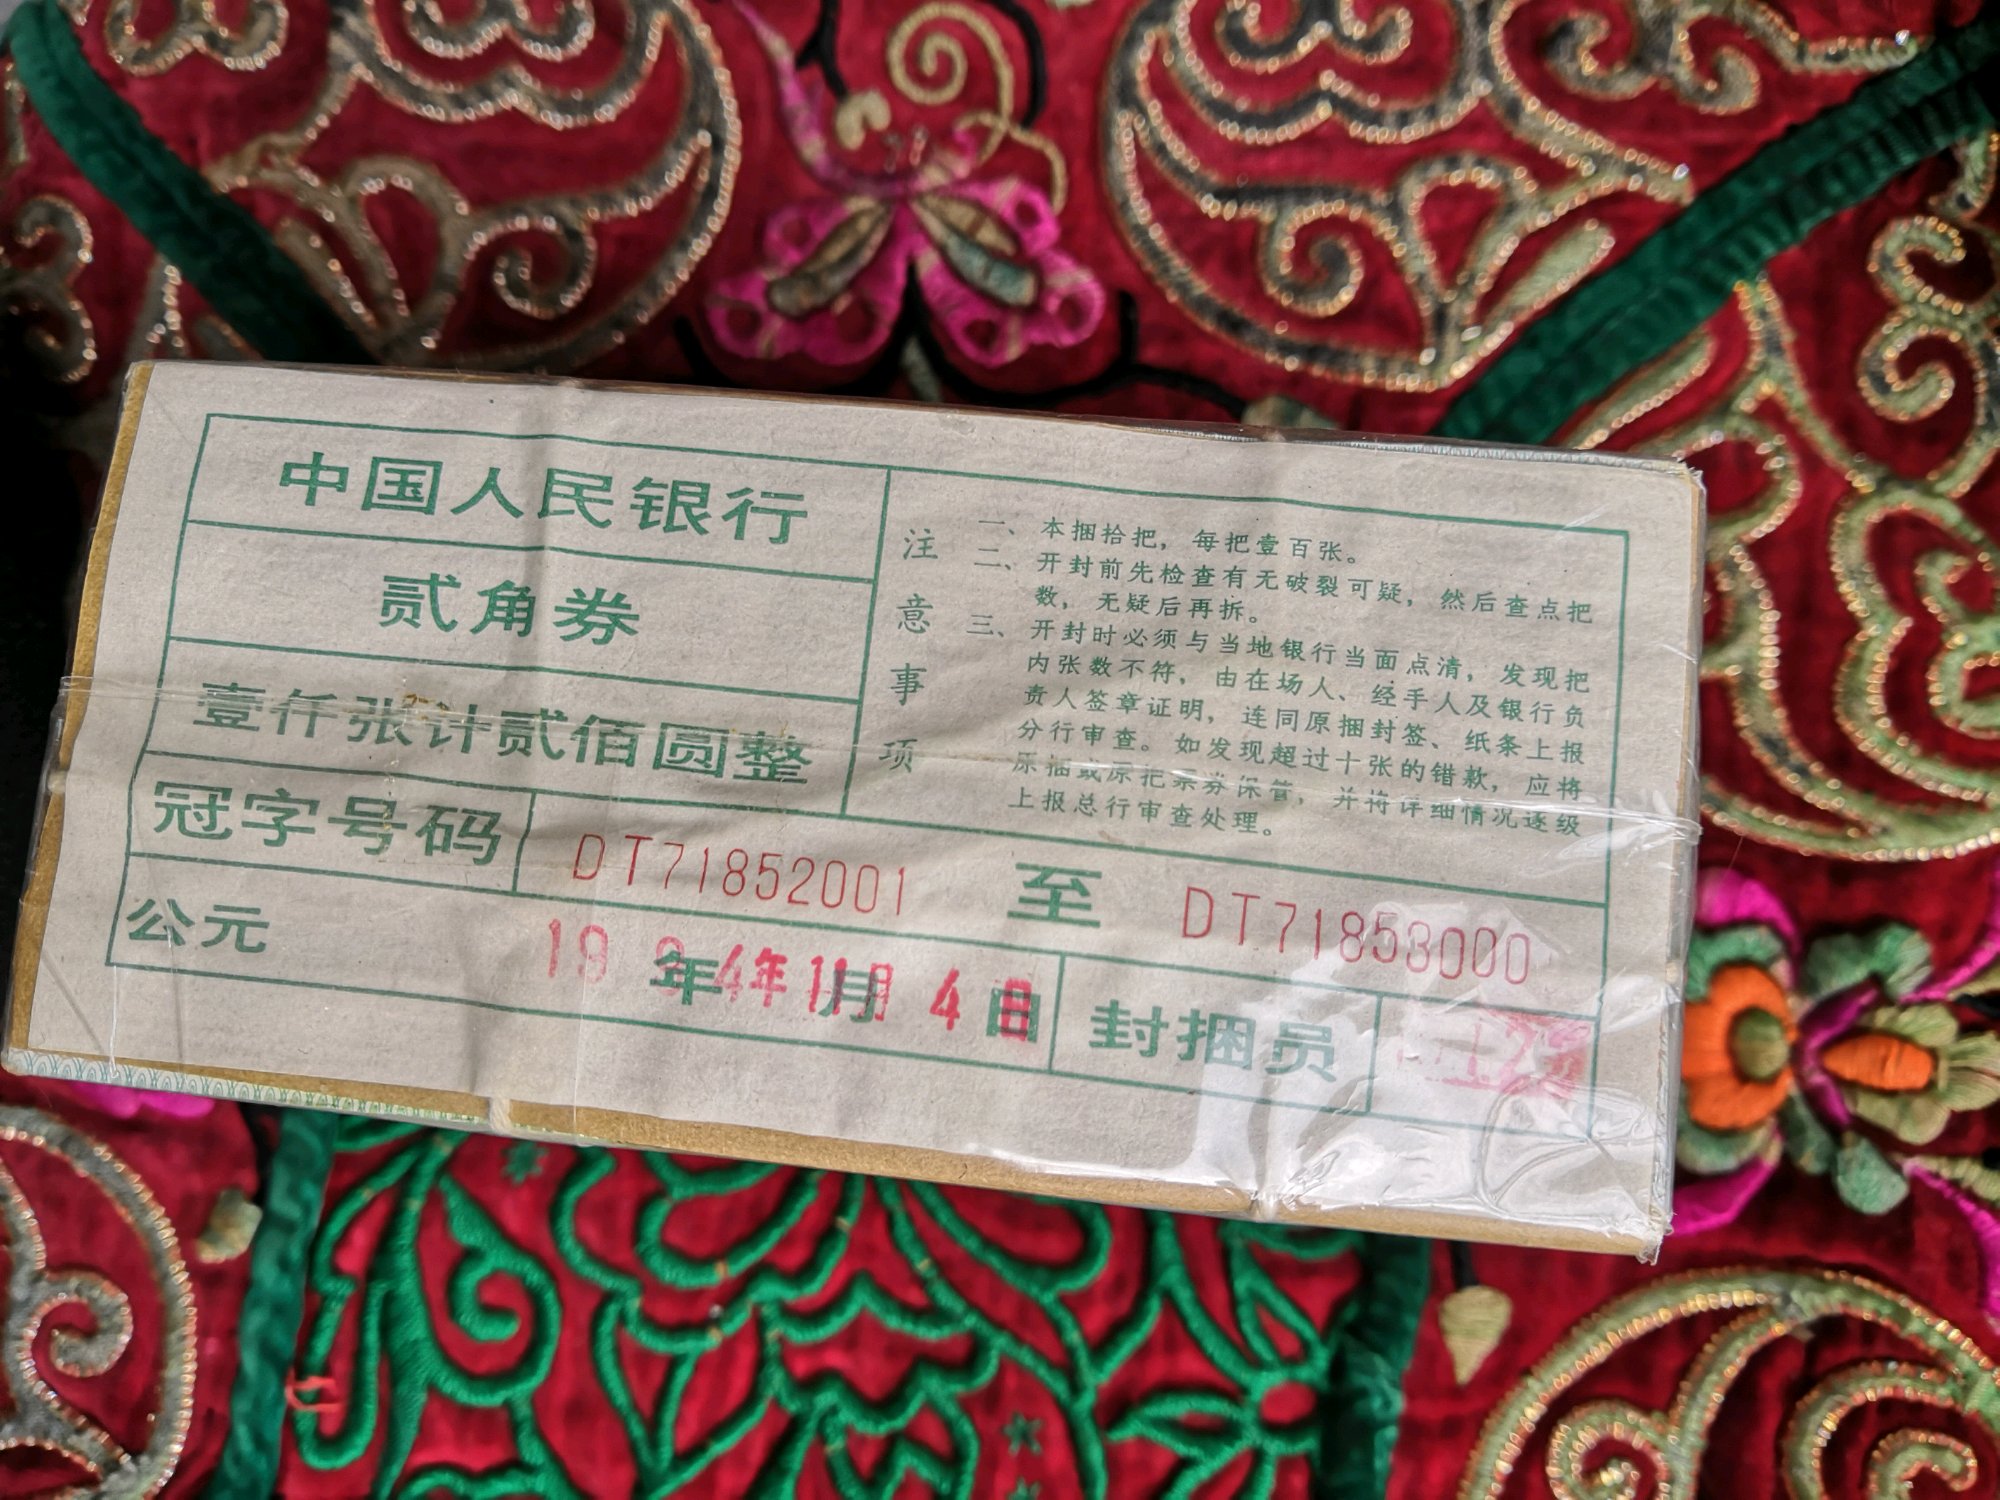 中国人民银行
贰角券
壹仟张计贰佰圆整
注意事项
一、本捆拾把，每把壹百张。
二、开封前先检查有无破裂可疑，然后查点把
数，无疑后再拆。
三、开封时必须与当地银行当面点清，发现把
内张数不符，由在场人、经手人及银行负
责人签章证明，连同原捆封签、纸条上报
分行审查。如发现超过十张的错款，应将
原捆或原把票券保管，并将详细情况逐级
上报总行审查处理。
冠字号码 DT71852001 至 DT71853000
公元 19 94年11月 4日 封捆员